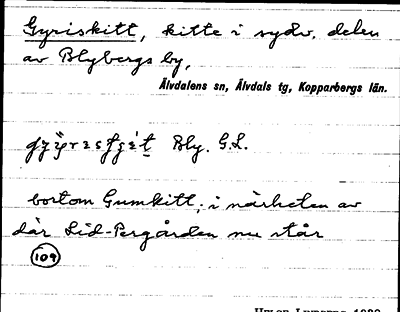 Gyriskitt, kitte i sydv. delen
av Blybergs by.
Älvdalens sn, Älvdals tg, Kopparbergs län.
Bly. G.L.
bortom Gumkitt; i närheten av
där Lid-Pergården nu står
109